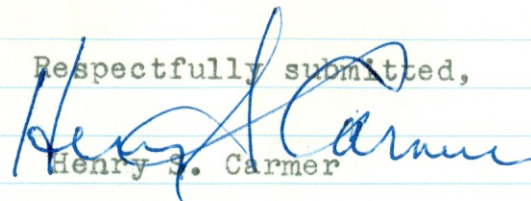 Respectfully submitted,
Henry S. Carmer
Henry S. Carmer